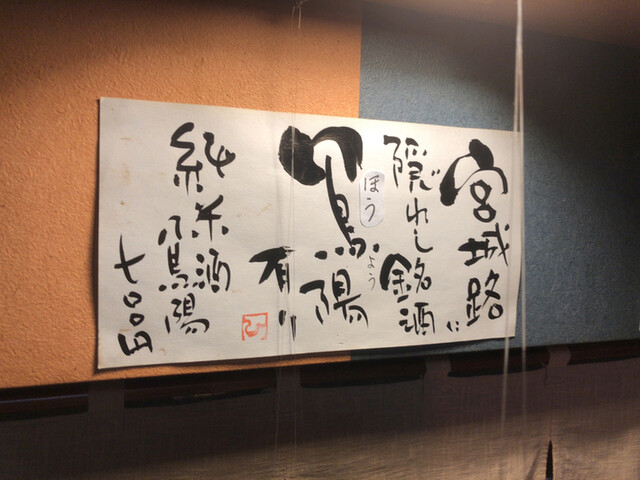 宮城路に
隠れし銘酒
鳳陽
ほう
よう
有り
純米酒鳳陽
七〇〇円